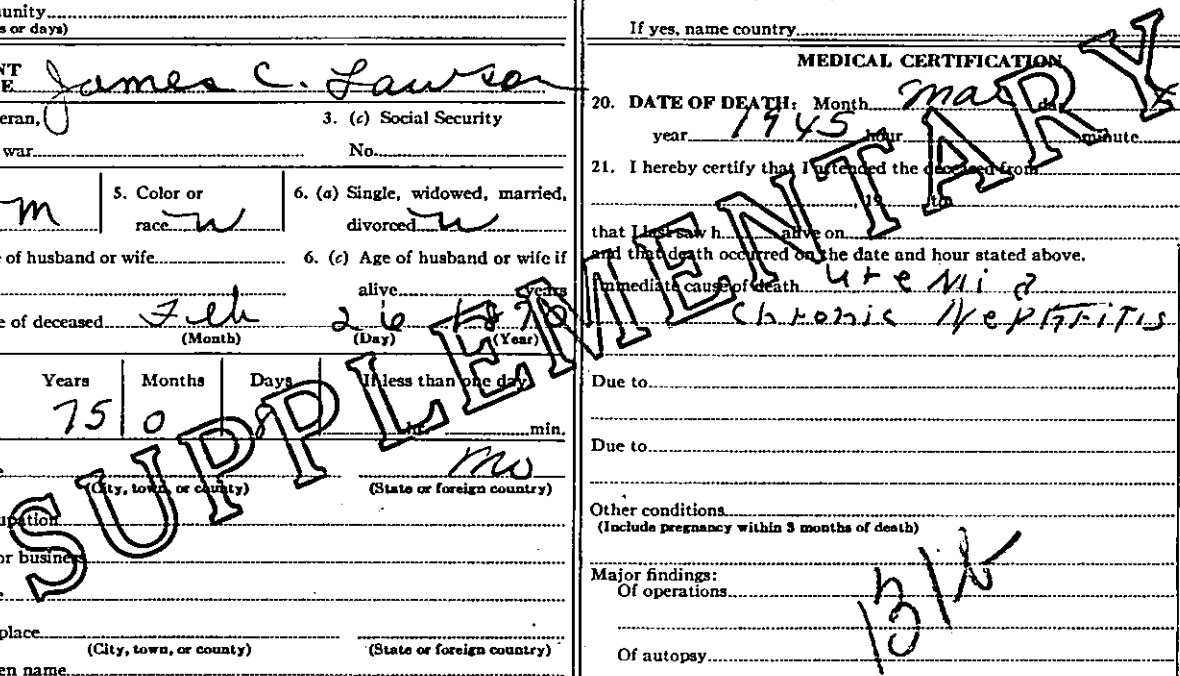 unity
s or days)
NT
E James C. Lawson
eran,
3. (c) Social Security
war
No.
m
5. Color or
race W
6. (a) Single, widowed, married,
divorced W
e of husband or wife
6. (c) Age of husband or wife if
alive years
e of deceased Feb 26 1870
(Month) (Day) (Year)
Years Months Days If less than one day
75 0 8 hr. min.
e Mo
(City, town, or county) (State or foreign country)
upation
or business
e
place
(City, town, or county) (State or foreign country)
en name
If yes, name country
MEDICAL CERTIFICATION
20. DATE OF DEATH: Month Mar day
year 1945 hour minute
21. I hereby certify that I attended the deceased from
19 to
that I last saw h alive on
and that death occurred on the date and hour stated above.
Immediate cause of death Uremia
Chronic Nephritis
Due to
Due to
Other conditions
(Include pregnancy within 3 months of death)
Major findings:
Of operations
Of autopsy
SUPPLEMENTARY